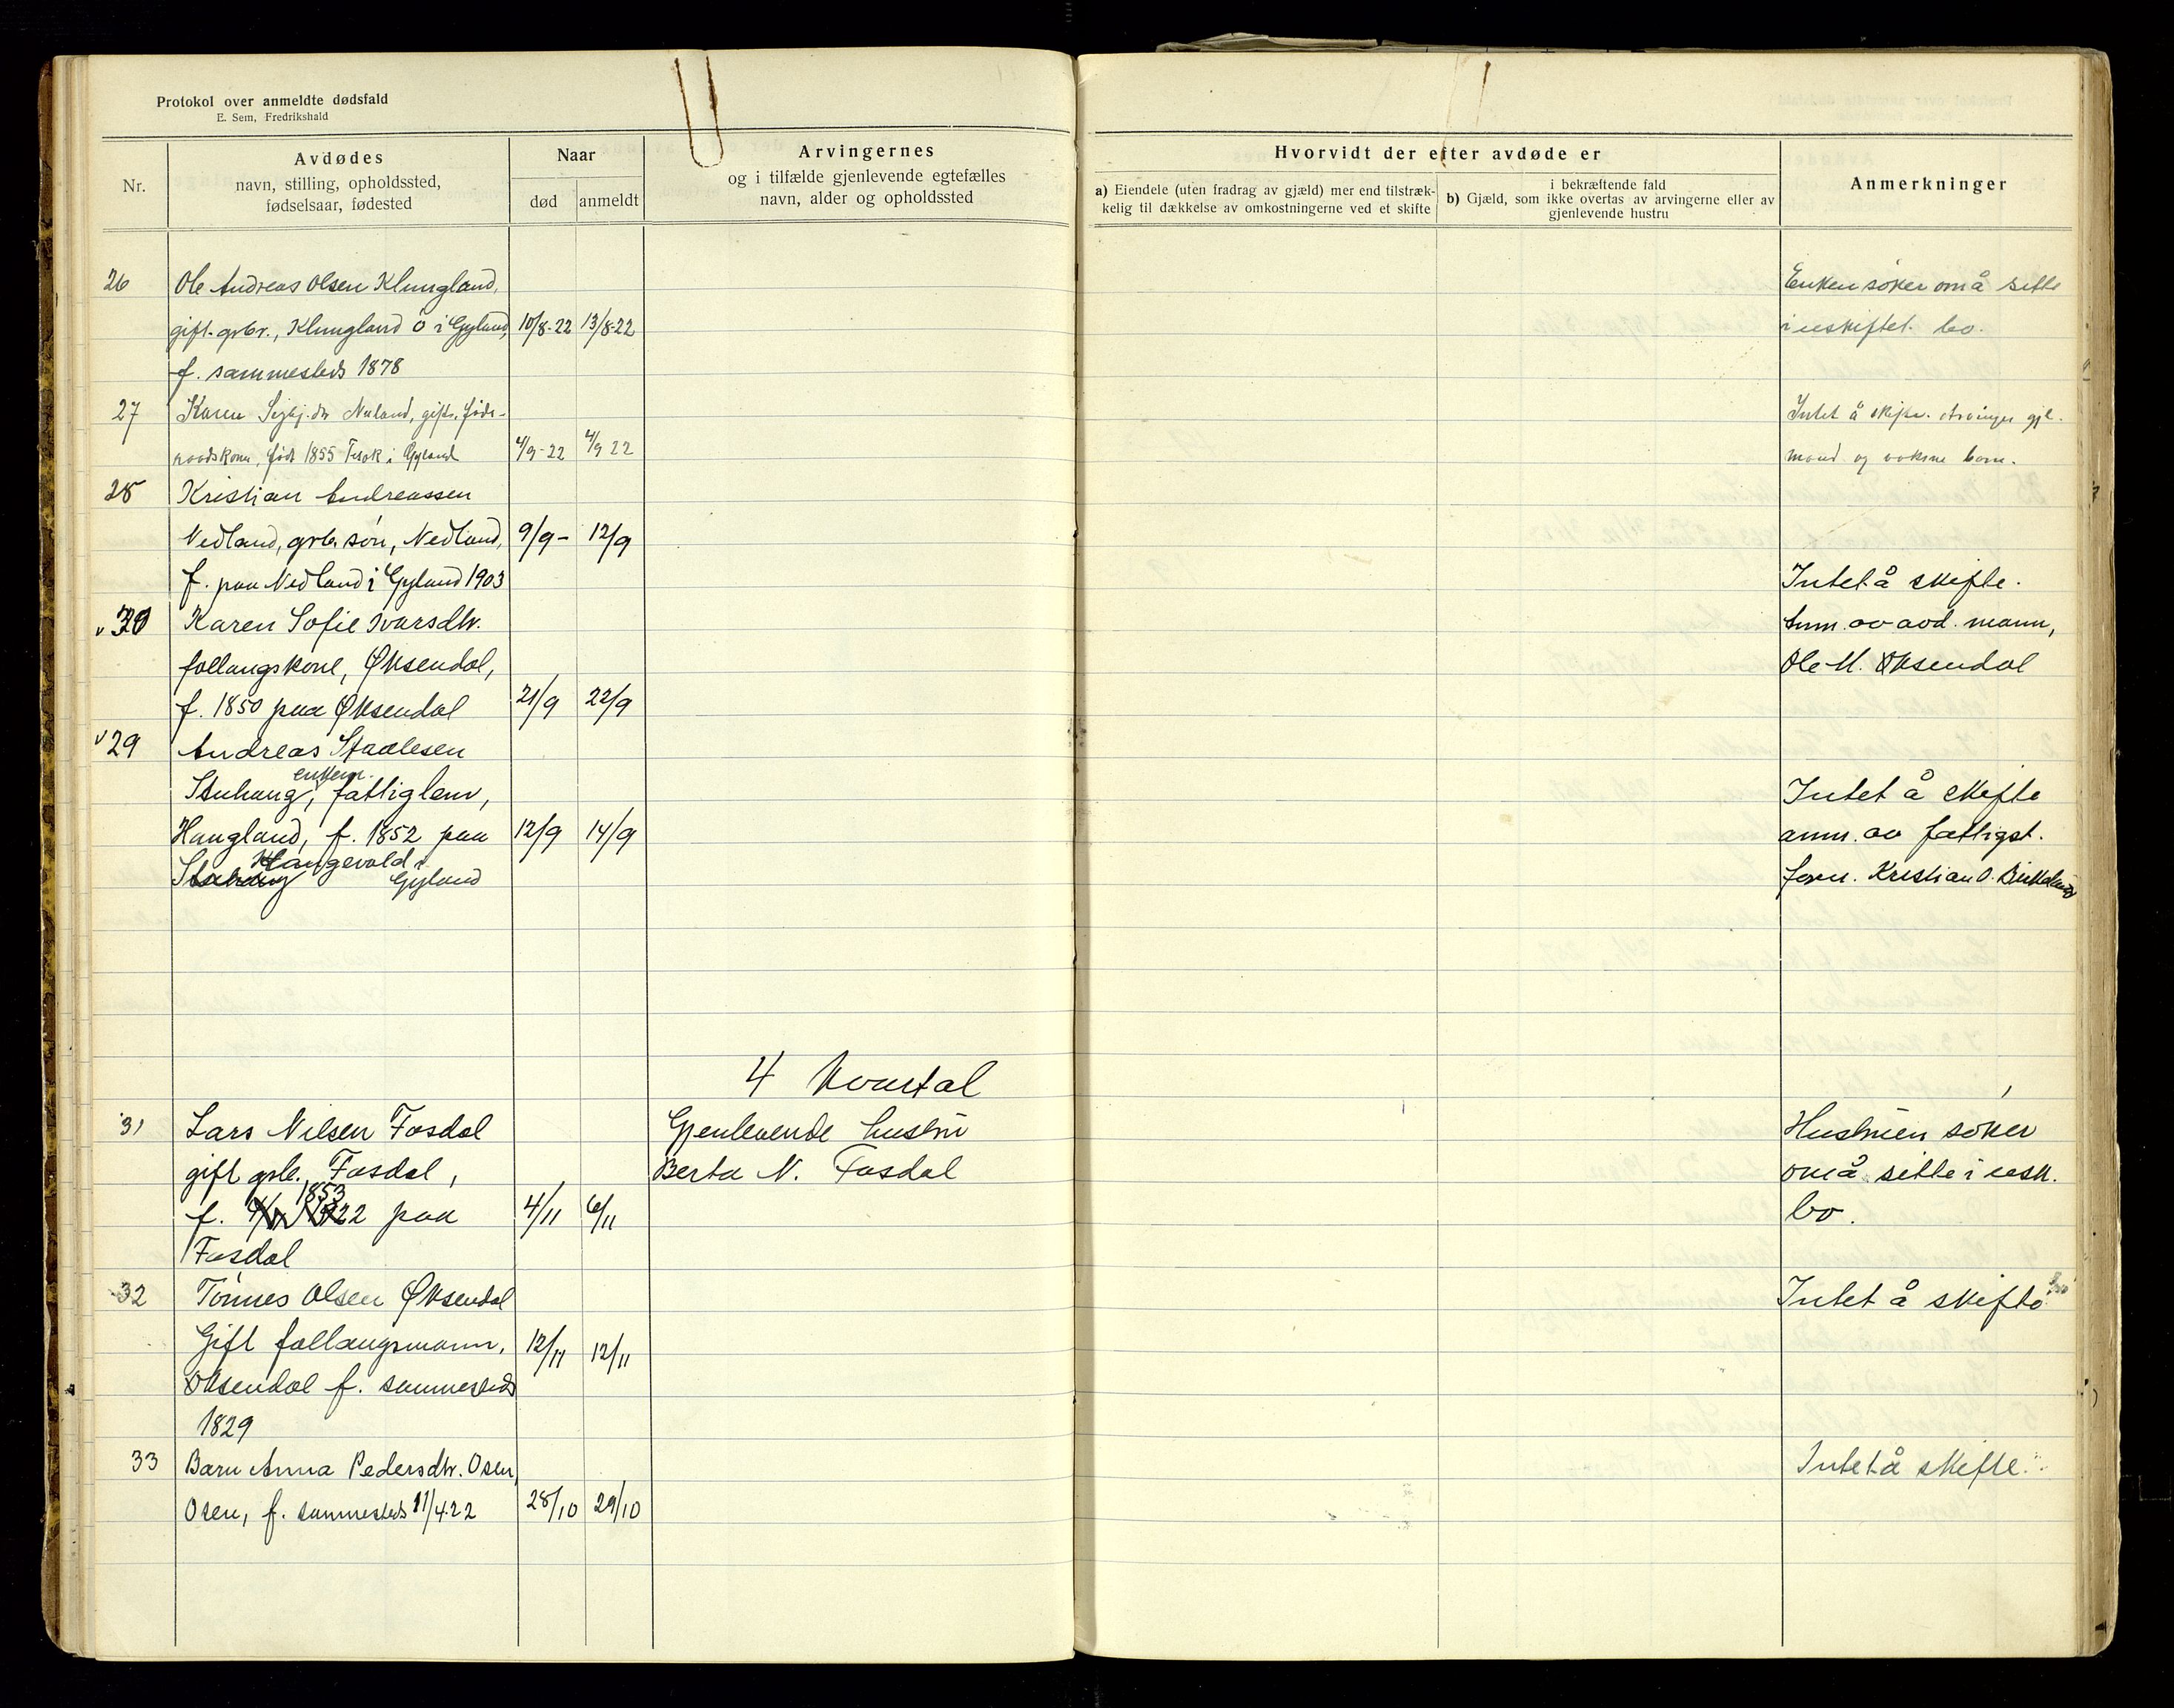 Protokol over anmeldte dødsfald
E. Sem, Fredrikshald
Nr.
Avdødes
navn, stilling, opholdssted,
fødselsaar, fødested
Naar
død
anmeldt
Arvingernes
og i tilfælde gjenlevende egtefælles
navn, alder og opholdssted
Hvorvidt der efter avdøde er
a) Eiendele (uten fradrag av gjæld) mer end tilstræk-
kelig til dækkelse av omkostningerne ved et skifte
i bekræftende fald
b) Gjæld, som ikke overtas av arvingerne eller av
gjenlevende hustru
Anmerkninger
26 Ole Andreas Olsen Klungland, Enken søker om å sitte
gift. grbr., Klungland ö i Gyland, 10/8-22 13/8-22 i uskiftet bo.
f. sammesteds 1878
27 Karen Sigbj.dtr Nuland, gift, føde- Intet å skifte. Arvinger gjl.
raadskone, født 1855 i Gyland 4/9-22 4/9 22 mand og voksne barn.
28 Kristian Andreassen
Nedland, grb. søn, Nedland, 9/9- 12/9
f. paa Nedland i Gyland 1903 Intet å skifte.
v 30 Karen Sofie Ivarsdtr. Anm. av avd. mann,
follaugskone, Øksendal, Ole M. Øksendal
f. 1850 paa Øksendal 21/9 22/9
v 29 Andreas Staalesen
enkem.
Stuhaug, fattiglem, Intet å skifte
Haugland, f. 1852 paa 12/9 14/9 anm. av fattigst.
Haugevold i
Stuhaug Gyland form. Kristian O. Birkeland
4 Kvartal
31 Lars Nilsen Fosdal Gjenlevende hustru Hustruen søker
gift grb. Fosdal, Berta N. Fosdal om å sitte i usk.
1853
f. 22 paa 4/11 6/11 bo.
Fosdal
32 Tønnes Olsen Øksendal Intet å skifte
Gift follaugsmann, 12/11 12/11
Øksendal f. sammesteds
1829
33 Barn Anna Pedersdtr. Osen, Intet å skifte.
Osen, f. sammesteds 11/4 22 28/10 29/10